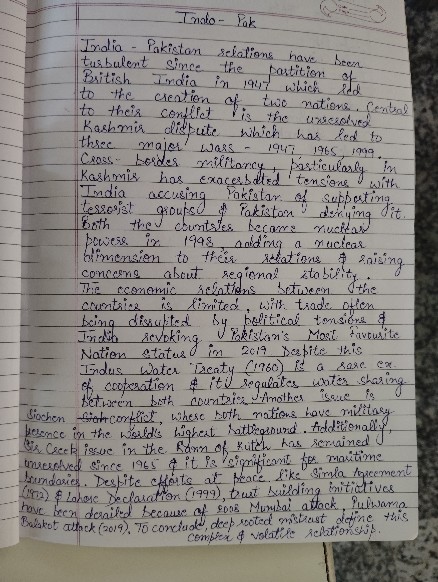 Indo - Pak
India - Pakistan relations have been
turbulent since the partition of
British India in 1947 which led
to the creation of two nations. Central
to their conflict is the unresolved
Kashmir dispute which has led to
three major wars - 1947, 1965, 1999.
Cross- border militancy, particularly in
Kashmir has exacerbated tensions with
India accusing Pakistan of supporting
terrorist groups & Pakistan denying it.
Both the countries became nuclear
powers in 1998, adding a nuclear
dimension to their relations & raising
concerns about regional stability.
The economic relations between the
countries is limited, with trade often
being disrupted by political tensions &
India revoking Pakistan's Most Favourite
Nation status in 2019. Despite this
Indus Water Treaty (1960) is a rare ex.
of cooperation & it regulates water sharing
between both countries. Another issue is
Siachen conflict, where both nations have military
presence in the world's highest battleground. Additionally,
Sir Creek issue in the Rann of Kutch has remained
unresolved since 1965 & it is significant for maritime
boundaries. Despite efforts at peace like Simla Agreement
(1972) & Lahore Declaration (1999), trust building initiatives
have been derailed because of 2008 Mumbai attack, Pulwama
Balakot attack (2019). To conclude, deep rooted mistrust define this
complex & volatile relationship.